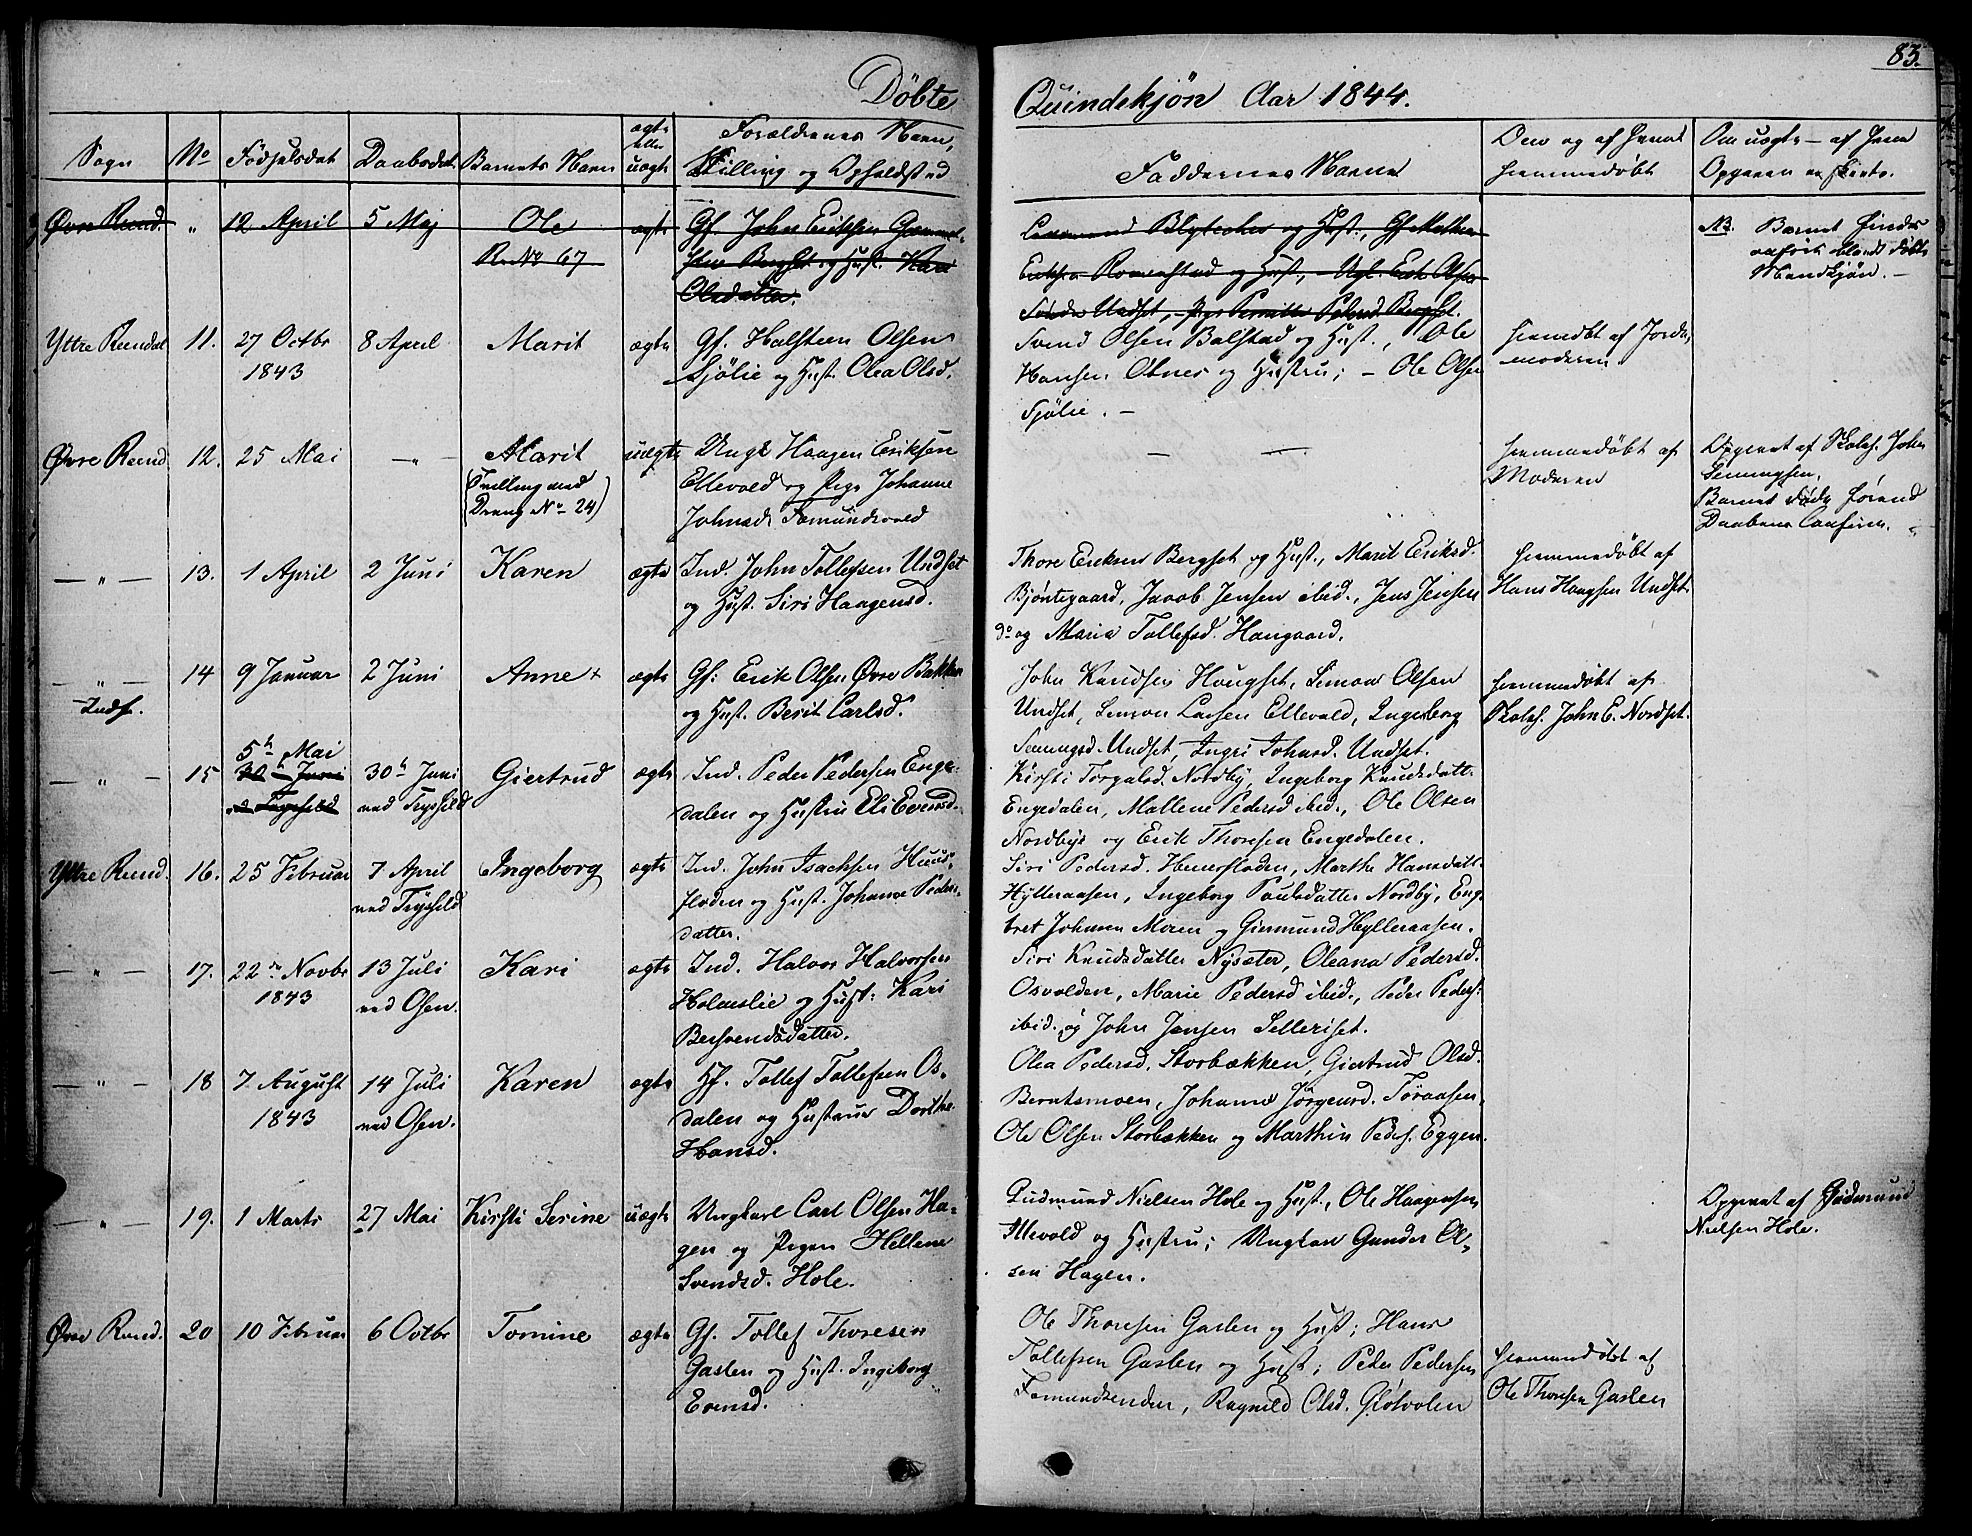 83.
Döbte Quindekjön Aar 1844.
Sogn No Födselsdat Daabsdat Barnets Navn ægte eller uægte Forældrenes Navn, Stilling og Opholdsted Faddernes Navne Om og af hvem hjemmedøbt Om uægte – af hvem Opgaven er skeet.
Øvre Rend. " 12 April 5 Maj Ole ægte Gf. John Eriksen
R. No 67 Bergset og Hust. Kari
Olsdatter.
og Hust., Gf.
Romenstad og Hust., – Ugk. Erik Olsen
Undset, Pige Pernille Pedersd. Bergset.
NB. Barnet findes
anfört blandt döbte
Mandkjön. –
Yttre Rendal 11. 27 Octbr 8 April Marit ægte Gf. Halsteen Olsen
1843 Sjölie og Hust. Olea Olsd.
Svend Olsen Balstad og Hust., Ole
Hansen Otnes og Hustru; – Ole Olsen
Sjölie. –
hjemmedøbt af Jorde-
moderen
Øvre Rend. 12. 25 Mai – " – Marit uægte Ungk. Haagen Eriksen
(Tvilling med Ellevold og Pige Johanne
Dreng No 24) Johnsd. Fæmundsvold
– –
hjemmedøbt af
Moderen
Opgivet af Skoleh. John
Semmingsen.
Barnet döde förend
Daabens Confirm.
– " – 13. 1 April 2 Juni Karen ægte Ind. John Tollefsen Undset
og Hust. Siri Haagensd.
Thore Eriksen Bergset og Hust., Marit Eriksd.
Bjöntegaard, Jacob Jensen ibid., Jens Jensen
do og Maria Tollefsd. Haugaard.
hjemmedøbt af
Hans Haagsen Undset.
– " – 14 9 Januar 2 Juni Anne + ægte Gf: Erik Olsen Øvre Bakken
Indf. og Hust. Berit Carlsd.
John Knudsen Haugset, Simon Olsen
Undset, Simon Larsen Ellevold, Ingeborg
Semingsd. Undset, Ingri Johnsd. Undset.
hjemmedøbt af
Skoleh. John E. Nordset.
5te Mai
– " – 15 30te Juni 30te Juni Giertrud ægte Ind. Peder Pedersen Enge-
i Trysild ved Trysild dalen og Hustru Eli Evensd.
Kirsti Torgalsd. Nordby, Ingeborg Knudsdatt.
Engedalen, Mallene Pedersd ibid., Ole Olsen
Nordbye og Erik Thoresen Engedalen.
Yttre Rend. 16. 25 Februar 7 April Ingeborg ægte Ind. John Isachsen
ved Trysild floden og Hust. Johanne Peders-
datter.
Siri Pedersd. Martha Hansdatt.
Hylleraasen, Ingeborg Paulsdatter Nordby, Eng-
bret Johnsen Moren og Giermund Hylleraasen.
– " – 17. 22de Novbr 13 Juli Kari ægte Ind. Halvor Halvorsen
1843 ved Osen. Holmslie og Hust: Kari
Bersvendsdatter.
Siri Knudsdatter Nysæter, Oleana Pedersd.
Osvolden, Marie Pedersd ibid., Peder Peders.
ibid. og John Jensen Selleriset.
– " – 18 7 August 14 Juli Karen ægte Hf. Tollef Tollefsen Os-
1843 ved Osen. dalen og Hustrue Dorthe
Hansd.
Olea Pedersd. Storbækken, Giertrud Olsd.
Berntsmoen, Johanne Jörgensd. Töraasen,
Ole Olsen Storbækken og Marthin Peders. Eggen.
– " – 19. 1 Marts 27 Mai Kirsti Serine uægte Ungkarl Carl Olsen Ha-
gen og Pigen Hellene
Svendsd. Hole.
Gudmund Nielsen Hole og Hust., Ole Haagensen
Ellevold og Hustru; Ungkarl Gunder Ol-
sen Hagen.
Opgivet af Gudmund
Nielsen Hole.
Øvre Rend. 20 10 Februar 6 Octbr Tomine ægte Gf. Tollef Thoresen
Gaslen og Hust. Ingeborg
Evensd.
Ole Thoresen Gaslen og Hust; Hans
Tollefsen Gaslen og Hust; Peder Pedersen
Fæmundsenden, Ragnild Olsd. Glötvolen
hjemmedøbt af
Ole Thoresen Gaslen